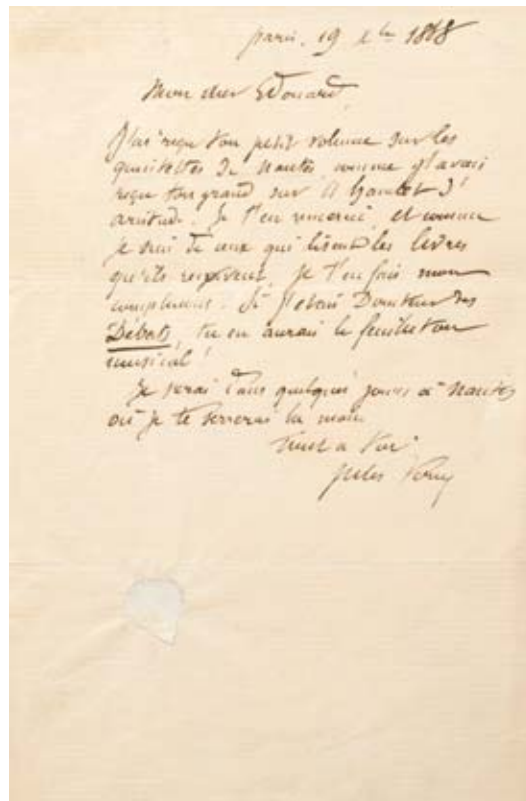 paris. 19 xbre 1868
Mon cher Edouard,
J'ai reçu ton petit volume sur les
quintettes de Nantes, comme j'avais
reçu ton grand sur A
Je t'en remercie, et comme
je suis de ceux qui lisent les livres
qu'ils reçoivent, je t'en fais mon
compliment. Si j'étais Directeur des
Débats, tu en aurais le feuilleton
musical!
Je serai dans quelques jours à Nantes
où je te serrerai la main
Tout à toi
Jules Verne